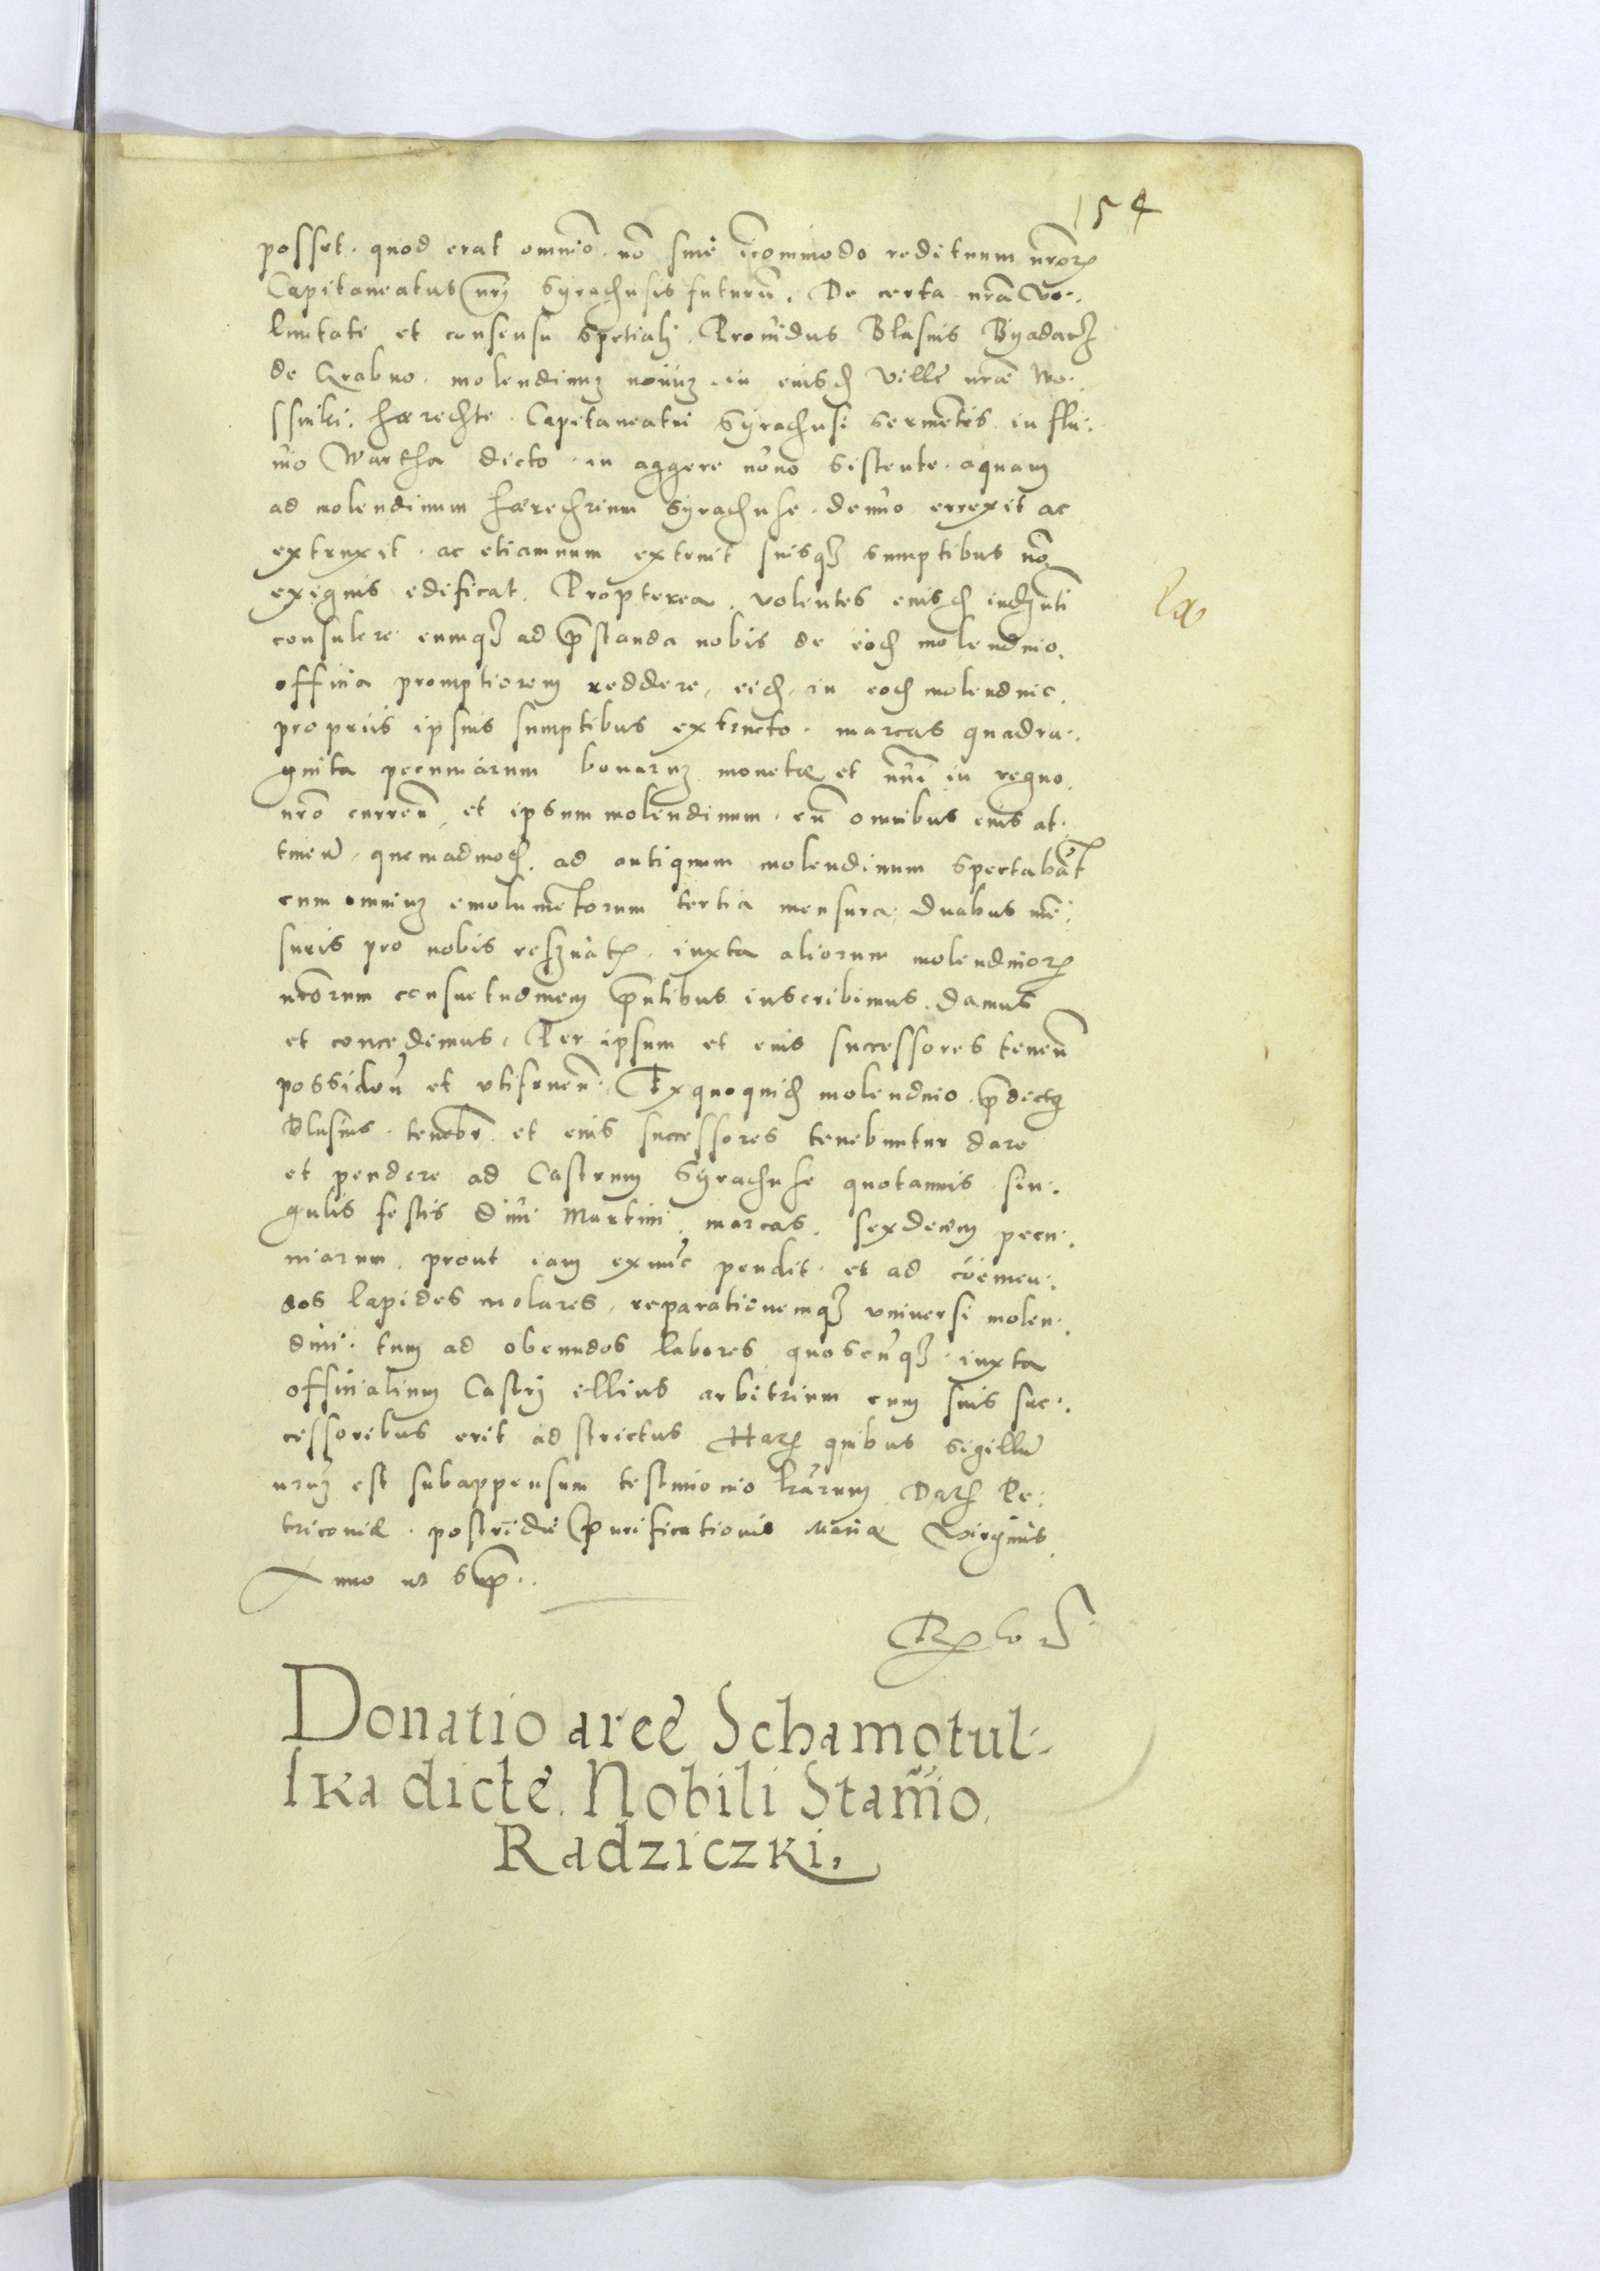 154
posset. quod erat omnio. nō sinē icommodo redituum nrorꝫ
Capitaneatus nrj Syradiensis futurū. De certa nrā vo-
luntate et consensu spetialj. Providus Blasius Byadacz
de Grabno. molendinum novum in eiusd ville nrae Wo-
ssniki. haerechte. Capitaneatui Syradiensi servientis. in flu-
mio Wartha dicto. in aggere novo sistente aquam
ad molendinum haerechtium Syradiense. denuo erexit ac
extruxit. ac etiamnum extruit suisqꝫ sumptibus nō
exiguis edificat. Propterea. volentes eiusd indenti
consulere eumqꝫ ad pstanda nobis de eod molendino.
officia promptiorem reddere, eid. in eod molendino.
propriis ipsius sumptibus extructo. marcas quadra-
ginta pecuniarum bonarum monetae et nūi in regno.
nro curren. et ipsum molendinum. cū omnibus eius at-
tinen. quemadmod. ad antiquum molendinum spectabāt
cum omnium emolumētorum tertia mensura: duabus mē-
suris pro nobis reservatꝫ. iuxta aliorum molendinorꝫ
nrorum consuetudinem pntibus inscribimus. damus
et concedimus. Per ipsum et eius successores tenen
possiden et utifruen. Ex quoquid molendino. pdictꝫ
Blasius. tenebr. et eius successores tenebuntur dare
et pendere ad Castrum Syradiense quotannis sin-
gulis festis divi Martini. marcas. sexdecim pecu-
niarum. prout iam exnūc pendit. et ad coemen-
dos lapides molares, reparationemqꝫ universi molen-
dini. tum ad obeundos labores quoscūqꝫ. iuxta
officialium Castrj illius arbitrium cum suis suc-
cessoribus erit adstrictus Harꝫ quibus sigillū
nrum est subappensum testimonio lrarum. Datꝫ Pe-
triconiae. postridie purificationis Mariae Virginis.
Anno ut sup.
Donatio aree Schamotul-
ska dicte. Nobili Stanio.
Radziczki,